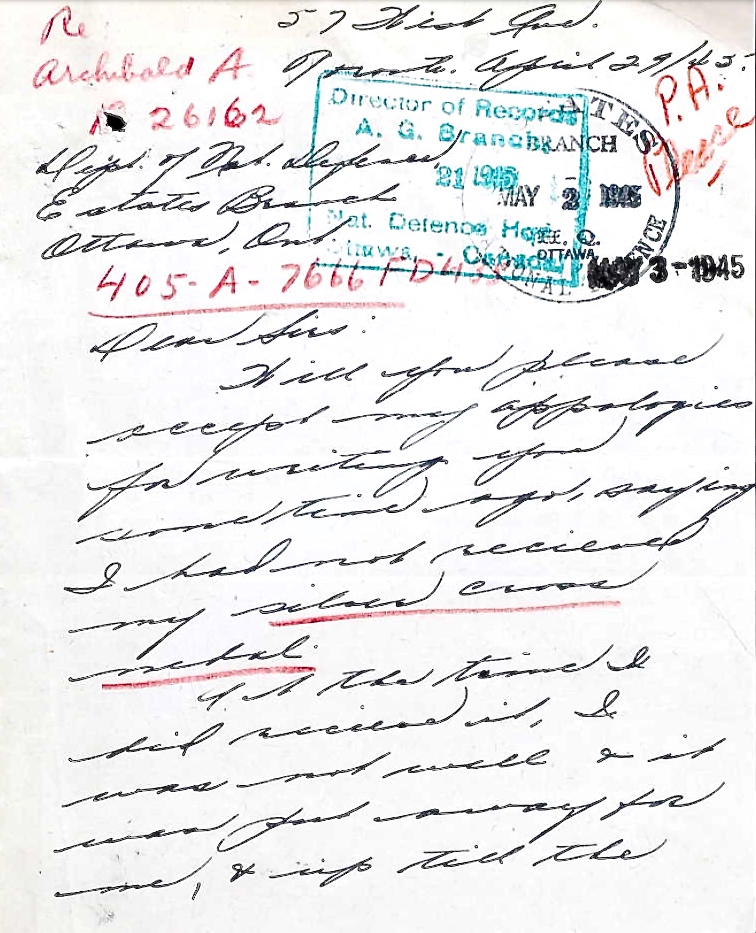 Re
57 West Ave.
Archibald A.
Toronto. April 29/45.
P.A.
Please
26162
Director of Records
A. G. Branch
21 1945
Nat. Defence Hqs.
Ottawa, - Canada
ATES
BRANCH
MAY 2 1945
H. Q.
OTTAWA
MAY 3 - 1945
Dept. of Nat. Defence
Estates Branch
Ottawa, Ont
405-A-7666 FD
Dear Sirs:
Will you please
accept my appologies
for writing you
some time ago, saying
I had not recieved
my silver cross
medal.
At the time I
did recieve it, I
was not well & it
was put away for
me, & up till the